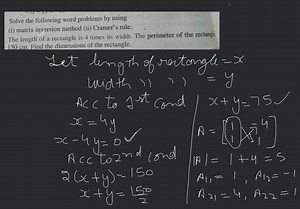 Solve the following word problems by using
(i) matrix inversion method (ii) Cramer's rule.
The length of a rectangle is 4 times its width. The perimeter of the rectangle
150 cm. Find the dimensions of the rectangle.
Let length of rectangle = x
Width " " " = y
Acc to 1st cond
x = 4y
x - 4y = 0 ✓
Acc to 2nd cond
2(x+y) = 150
x+y = 150/2
x+y = 75 ✓
A = [1 -4
1 1]
|A| = 1+4 = 5
A11 = 1, A12 = -1
A21 = 4, A22 = 1